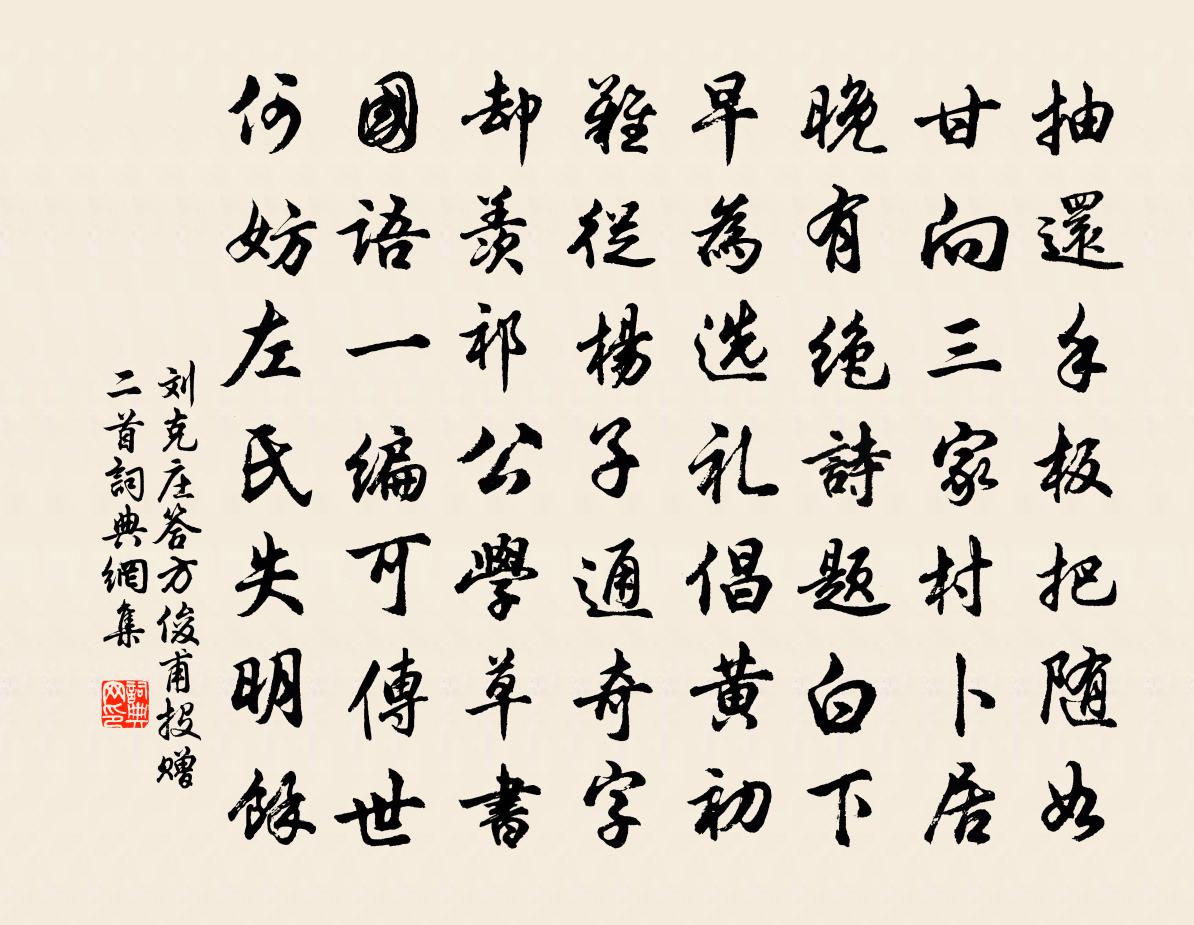 抽還手板把随如
甘向三家村卜居
晚有绝詩题白下
早為选礼倡黄初
難從楊子通奇字
却羨祁公學草書
國語一编可傳世
何妨左氏失明餘
刘克庄答方俊甫投赠
二首詞典網集
詞典网印